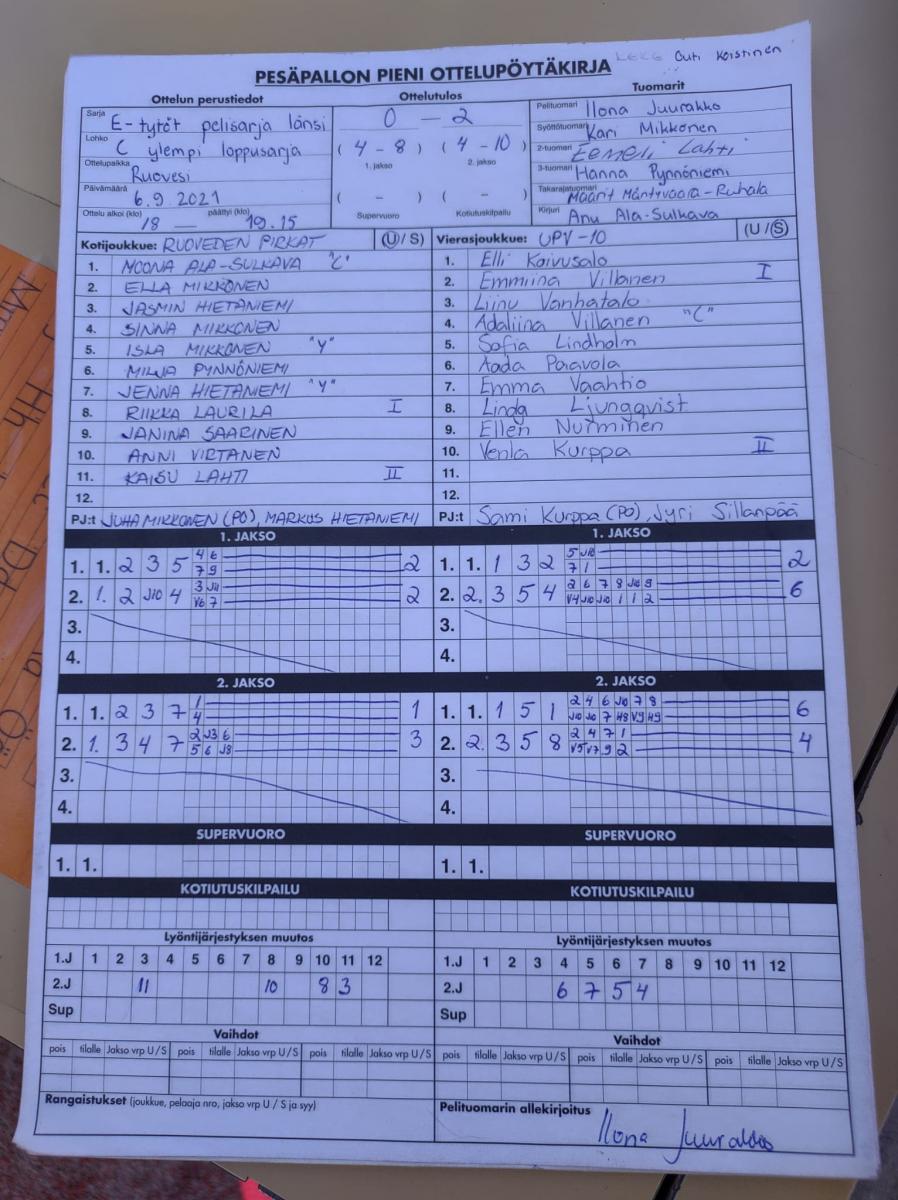 Outi Koistinen
PESÄPALLON PIENI OTTELUPÖYTÄKIRJA
Ottelun perustiedot
Sarja E-tytöt pelisarja länsi
Lohko C ylempi loppusarja
Ottelupaikka Ruovesi
Päivämäärä 6.9.2021
Ottelu alkoi (klo) 18 — päättyi (klo) 19.15
Ottelutulos
0 – 2
(4-8) (4-10)
1. jakso 2. jakso
( - ) ( - )
Supervuoro Kotiutuskilpailu
Tuomarit
Pelituomari Ilona Juurakko
Syöttötuomari Kari Mikkonen
2-tuomari Eemeli Lahti
3-tuomari Hanna Pynnöniemi
Takarajatuomari Maarit Mäntyvaara-Ruhala
Kirjuri Anu Ala-Sulkava
Kotijoukkue: RUOVEDEN PIRKAT (U/S)
1. NOONA ALA-SULKAVA "C"
2. ELLA MIKKONEN
3. JASMIN HIETANIEMI
4. SINNA MIKKONEN
5. ISLA MIKKONEN "Y"
6. MILJA PYNNÖNIEMI
7. JENNA HIETANIEMI "Y"
8. RIIKKA LAURILA I
9. JANINA SAARINEN
10. ANNI VIRTANEN
11. KAISU LAHTI II
12.
PJ:t JUHA MIKKONEN (PO), MARKUS HIETANIEMI
Vierasjoukkue: UPV-10 (U/S)
1. Elli Koivusalo
2. Emmiina Villanen I
3. Liinu Vanhatalo
4. Adaliina Villanen "C"
5. Sofia Lindholm
6. Aada Paavola
7. Emma Vaahtio
8. Linda Ljungqvist
9. Ellen Nurminen
10. Venla Kurppa II
11.
12.
PJ:t Sami Kurppa (PO), Jyri Sillanpää
1. JAKSO
1. 1. 2 3 5 4 6 2
7 9
2. 1. 2 J10 4 3 J11 2
V6 7
3.
4.
1. JAKSO
1. 1. 1 3 2 5 J10 2
7 1
2. 2. 3 5 4 2 6 7 8 J10 9 6
V4 J10 J10 1 1 2
3.
4.
2. JAKSO
1. 1. 2 3 7 1 1
4
2. 1. 3 4 7 2 J3 6 3
5 6 J8
3.
4.
2. JAKSO
1. 1. 1 5 1 2 4 6 J10 7 8 6
J10 J10 7 H8 V9 H9
2. 2. 3 5 8 2 4 7 1 4
V5 V7 9 2
3.
4.
SUPERVUORO
1. 1.
SUPERVUORO
1. 1.
KOTIUTUSKILPAILU
KOTIUTUSKILPAILU
Lyöntijärjestyksen muutos
1.J 1 2 3 4 5 6 7 8 9 10 11 12
2.J 11 10 8 3
Sup
Lyöntijärjestyksen muutos
1.J 1 2 3 4 5 6 7 8 9 10 11 12
2.J 6 7 5 4
Sup
Vaihdot
pois tilalle Jakso vrp U/S pois tilalle Jakso vrp U/S pois tilalle Jakso vrp U/S
Vaihdot
pois tilalle Jakso vrp U/S pois tilalle Jakso vrp U/S pois tilalle Jakso vrp U/S
Rangaistukset (joukkue, pelaaja nro, jakso vrp U / S ja syy)
Pelituomarin allekirjoitus
Ilona Juurakko